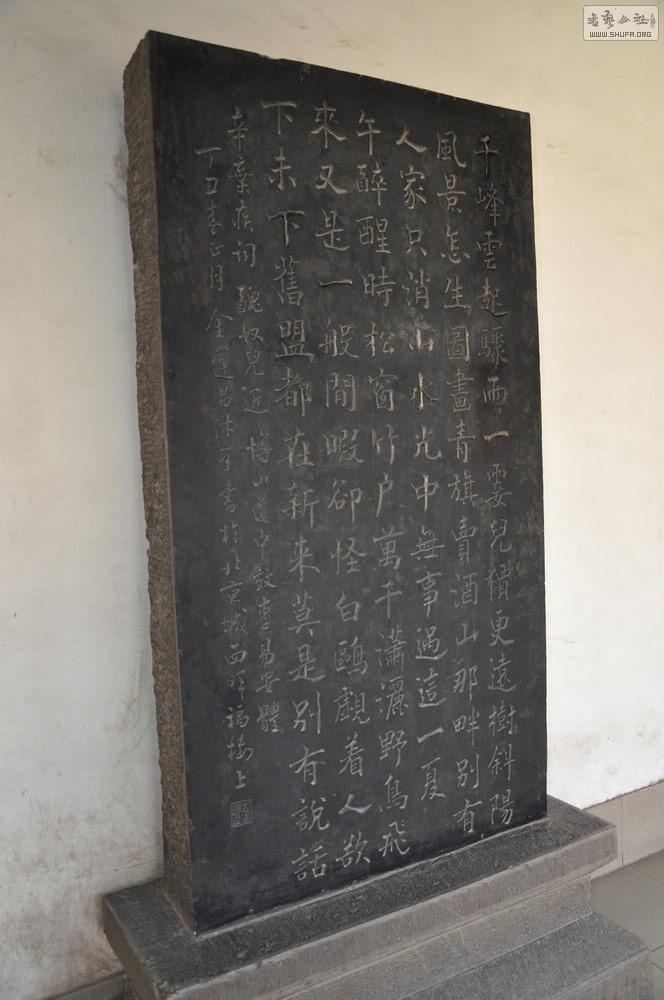 千峰雲起驟雨一霎兒價更遠樹斜陽
風景怎生圖畫青旗賣酒山那畔別有
人家只消山水光中無事過這一夏
午醉醒時松窗竹户萬千瀟灑野鳥飛
來又是一般間暇卻怪白鷗覷着人欲
下未下舊盟都在新來莫是別有說話
辛棄疾詞 醜奴兒近 博山道中效李易安體
丁丑春正月 金運昌沐手書於北京城西暉福樓上
书艺公社
WWW.SHUFA.ORG